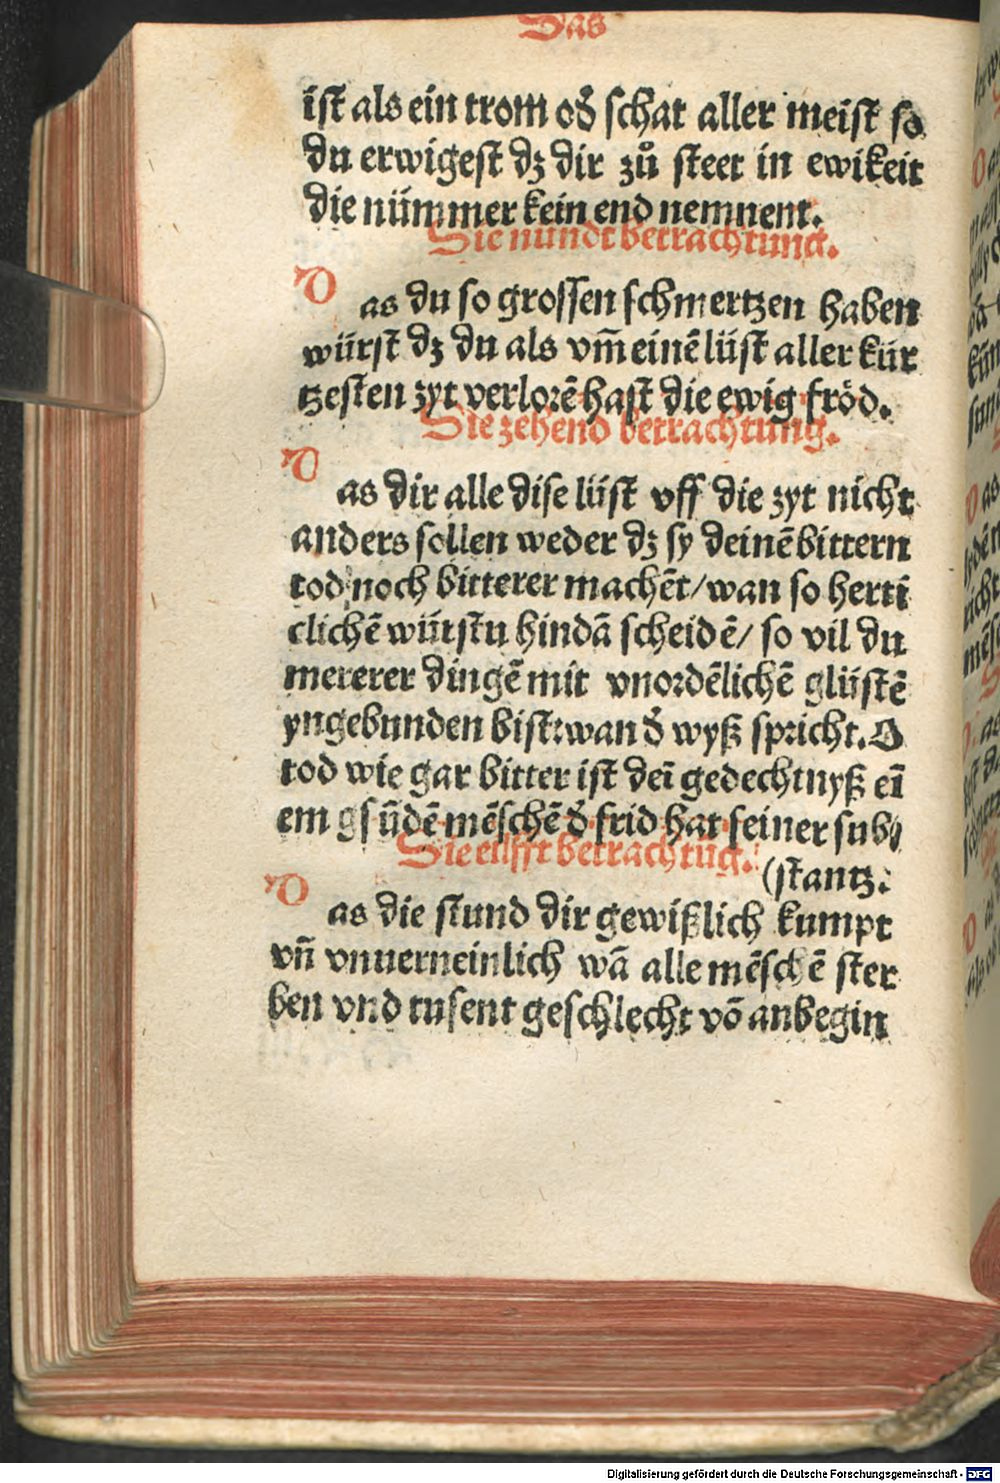 Das
ist als ein trom od̕ schat aller meist so
du erwigest dʒ dir zuͦ steet in ewikeit
die nümmer kein end nemment.
Die nundt betrachtung.
D
as du so grossen schmertzen haben
würst dʒ du als vm̄ einē lüst aller kür
tzesten zyt verlorē hast die ewig fröd.
Die zehend betrachtung.
D
as dir alle dise lüst vff die zyt nicht
anders sollen weder dʒ sy deinē bittern
tod noch bitterer machēt/ wan so herti
clichē würstu hindā scheidē/ so vil du
mererer dingē mit vnordēlichē glüstē
yngebunden bist: wan d̕ wyß spricht. O
tod wie gar bitter ist deī gedechtnyß eī
em gsūdē mēschē d̕ frid hat seiner sub//
(stantz.
Die eilfft betrachtūg.
D
as die stund dir gewißlich kumpt
vn̄ vnuerneinlich wā alle mēschē ster
ben vnd tusent geschlecht vō anbegin
Digitalisierung gefördert durch die Deutsche Forschungsgemeinschaft - DFG